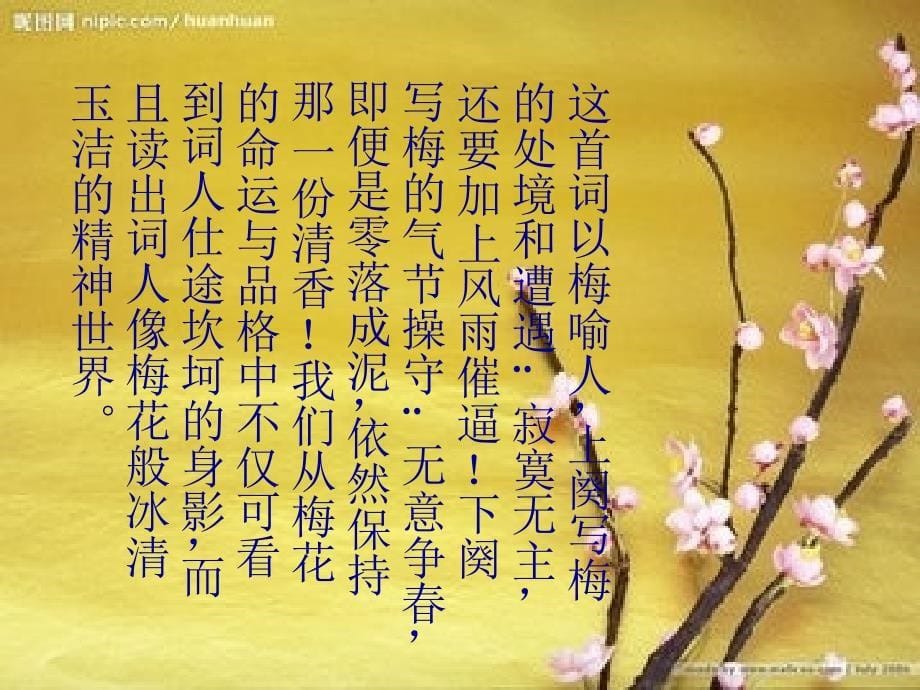 昵图网 nipic.com/huanhuan
这首词以梅喻人,上阕写梅
的处境和遭遇:寂寞无主,
还要加上风雨催逼!下阕
写梅的气节操守:无意争春,
即便是零落成泥,依然保持
那一份清香!我们从梅花
的命运与品格中不仅可看
到词人仕途坎坷的身影,而
且读出词人像梅花般冰清
玉洁的精神世界。